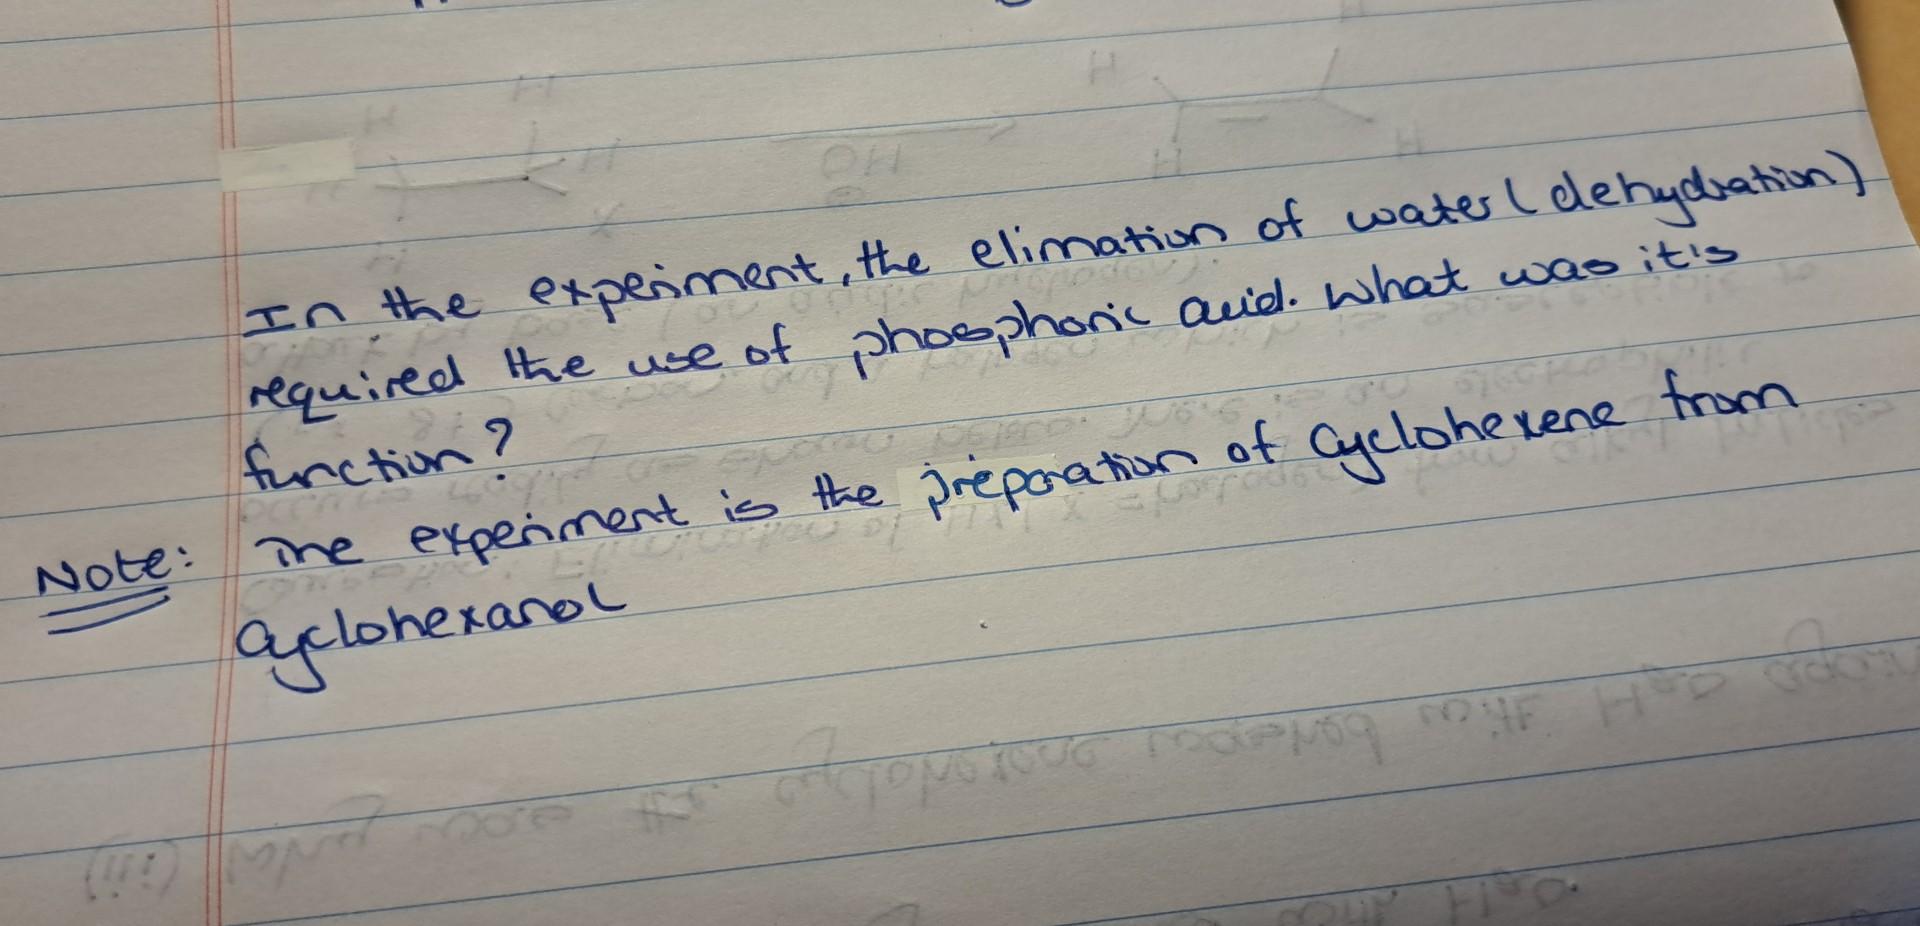 In the experiment, the elimation of water (dehydration)
required the use of phosphoric acid. What was it's
function?
Note: The experiment is the preparation of Cyclohexene from
Cyclohexanol